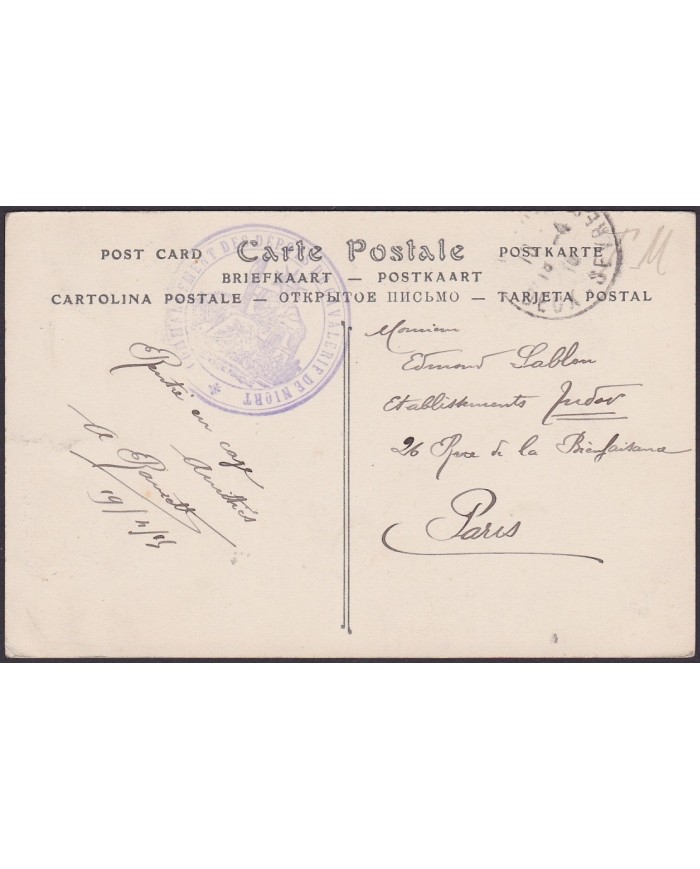 POST CARD Carte Postale POSTKARTE
BRIEFKAART — POSTKAART
CARTOLINA POSTALE — ОТКРЫТОЕ ПИСЬМО — TARJETA POSTAL
DES DÉPÔTS DE CAVALERIE DE NIORT
SEVRES
T.M
Monsieur
Edmond Sablon
Etablissements
26 Rue de la Bienfaisance
Paris
Rentré en cage
Amitiés
A